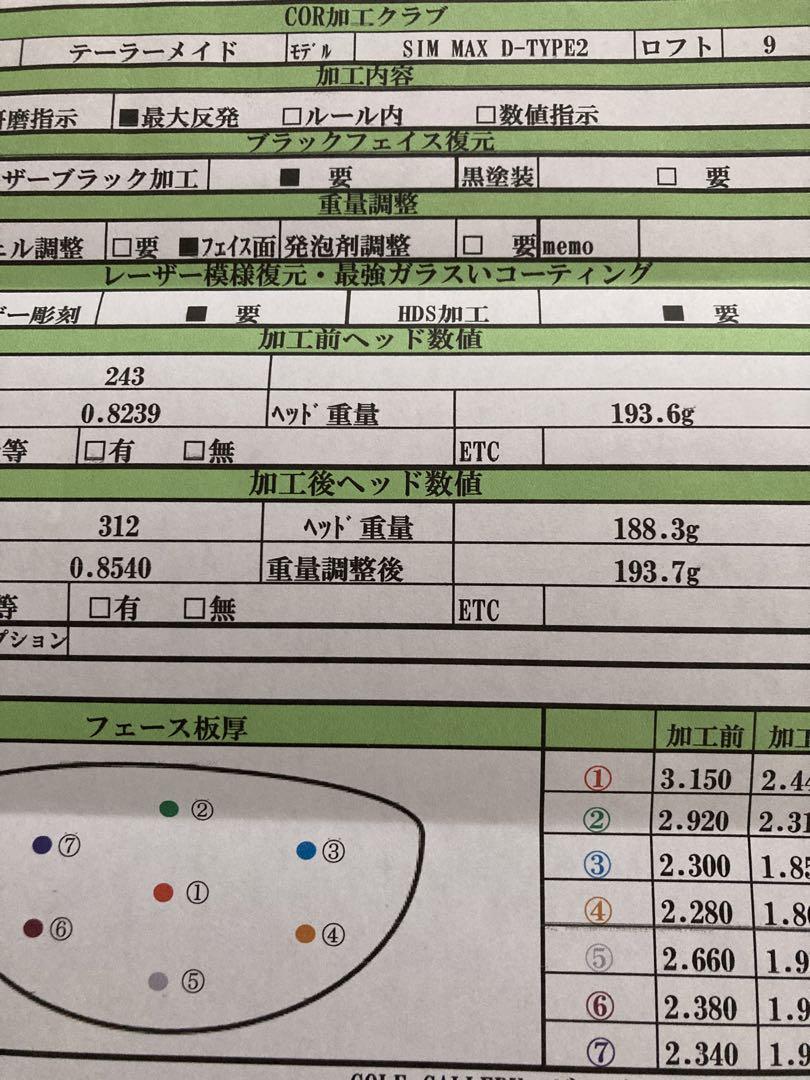 COR加工クラブ
テーラーメイド ﾓﾃﾞﾙ SIM MAX D-TYPE2 ロフト 9
加工内容
磨指示 ■最大反発 □ルール内 □数値指示
ブラックフェイス復元
ザーブラック加工 ■ 要 黒塗装 □ 要
重量調整
ェル調整 □要 ■ﾌｪｲｽ面 発泡剤調整 □ 要 memo
レーザー模様復元・最強ガラスいコーティング
ー彫刻 ■ 要 HDS加工 ■ 要
加工前ヘッド数値
243
0.8239 ﾍｯﾄﾞ重量 193.6g
等 □有 □無 ETC
加工後ヘッド数値
312 ﾍｯﾄﾞ重量 188.3g
0.8540 重量調整後 193.7g
等 □有 □無 ETC
プション
フェース板厚 加工前 加工
① 3.150 2.44
② 2.920 2.31
③ 2.300 1.85
④ 2.280 1.80
⑤ 2.660 1.9
⑥ 2.380 1.9
⑦ 2.340 1.9
②
⑦ ③
①
⑥ ④
⑤
GOLF GALLERY